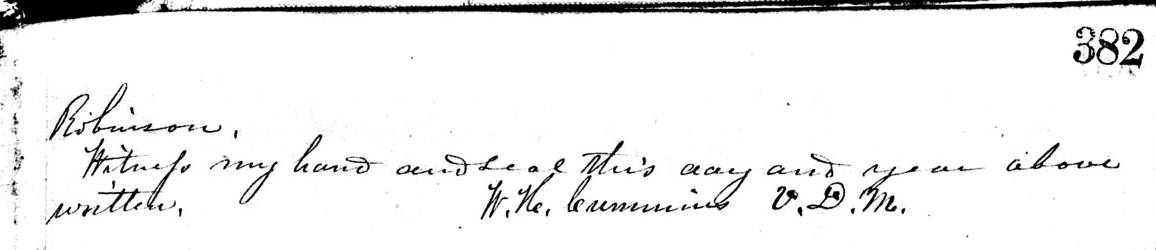 382
Robinson.
Witness my hand and seal this day and year above
written. W. H. Cummins V. D. M.